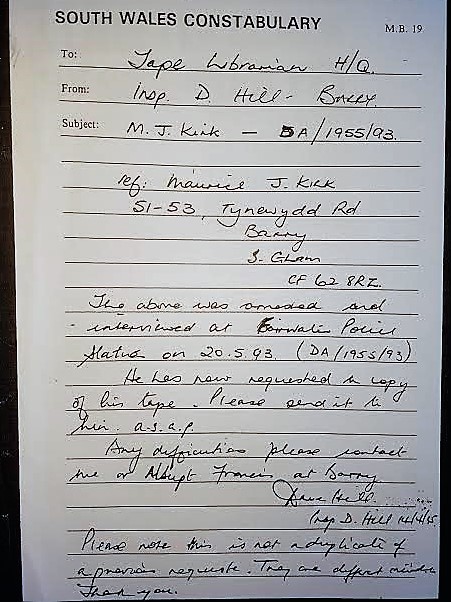 SOUTH WALES CONSTABULARY
M.B. 19
To: Tape Librarian H/Q.
From: Insp. D. Hill - Barry.
Subject: M. J. Kirk — DA/1955/93.
ref: Maurice J. Kirk
51-53, Tynewydd Rd
Barry
S. Glam
CF 62 8RZ.
The above was arrested and
interviewed at Police
Station on 20.5.93. (DA/1955/93)
He has now requested a copy
of his tape. Please send it to
him. a.s.a.p.
Any difficulties please contact
me or Francis at Barry
Dave Hill.
Insp D. Hill
Please note this is not a duplicate of
a previous requests. They are different
Thank you.